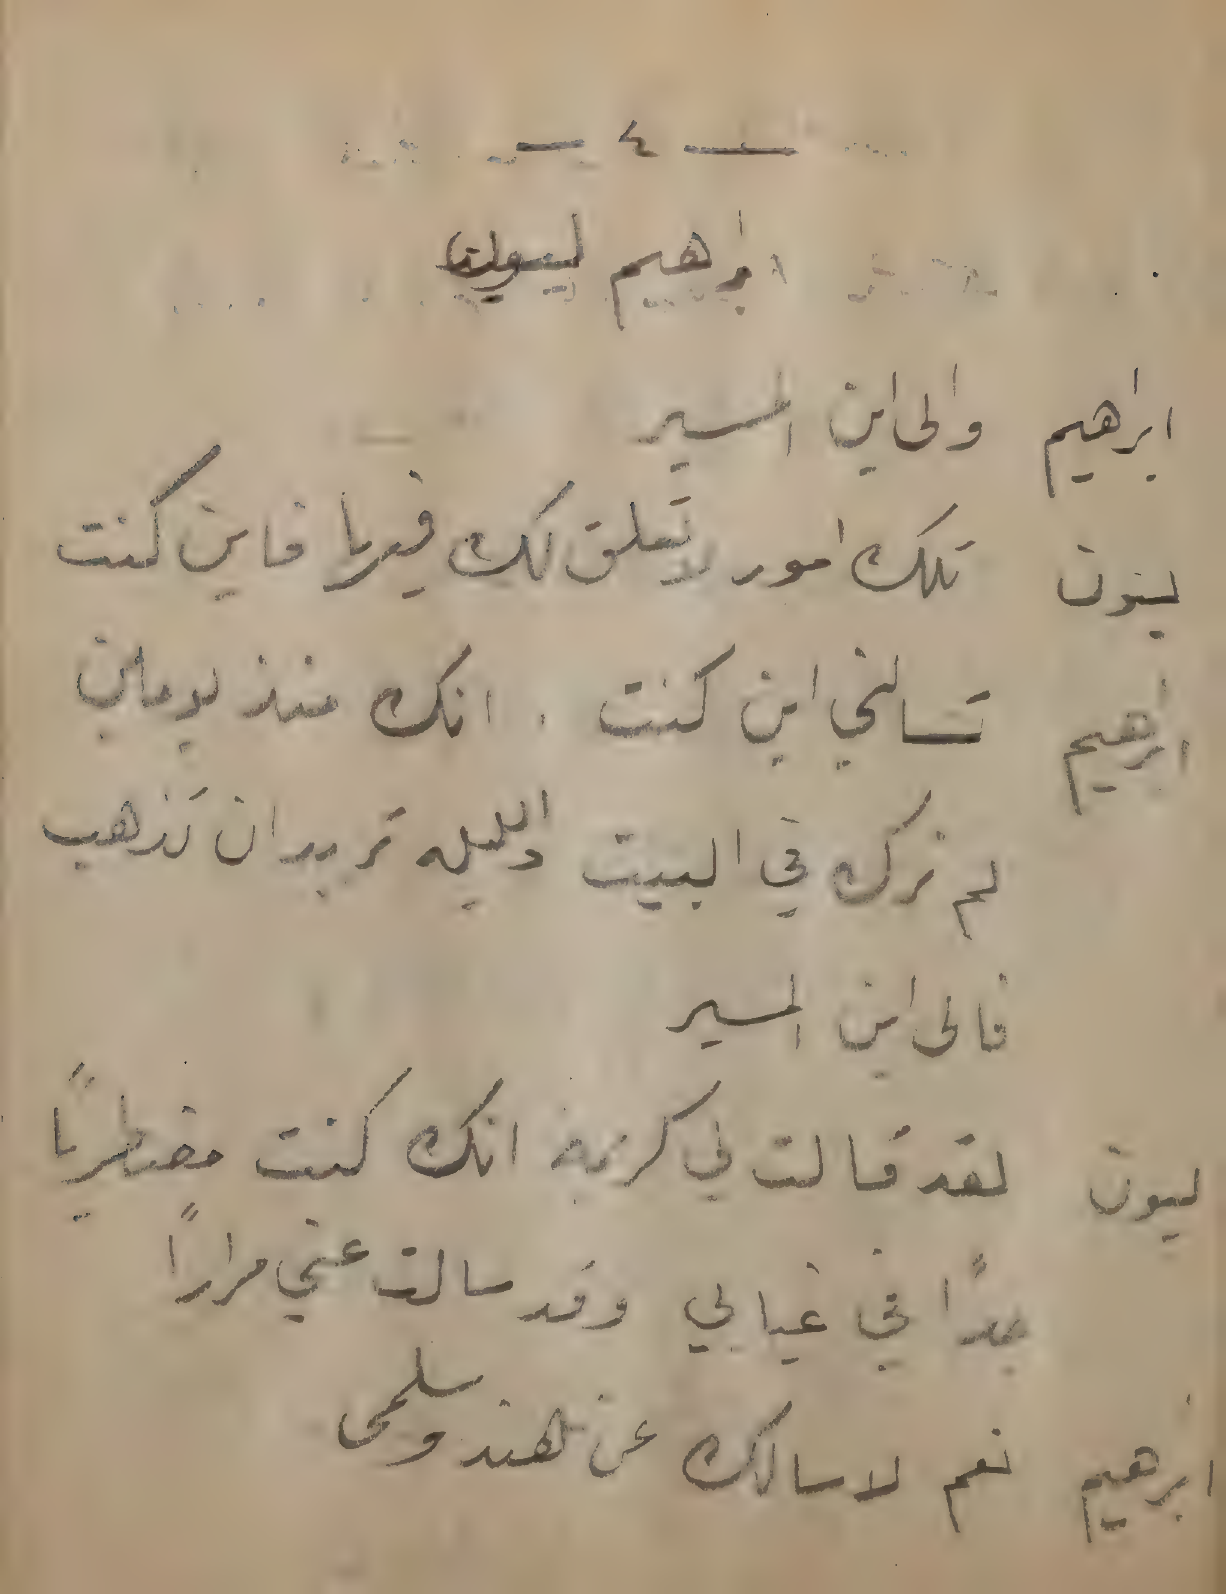 — ٤ —
ابراهيم ليون
ابراهيم والى اين المسير
ليون تلك امور لا تعلق لك فيها فاين كنت
ابراهيم تسالني اين كنت . انك منذ يومين
لم نرك في البيت والليله تريد ان تذهب
فالى اين المسير
ليون لقد قالت لي كريمة انك كنت مضطربًا
جدًا في غيابي وقد سالت عني مرارًا
ابرهيم نعم لاسالك عن هند وسلمى